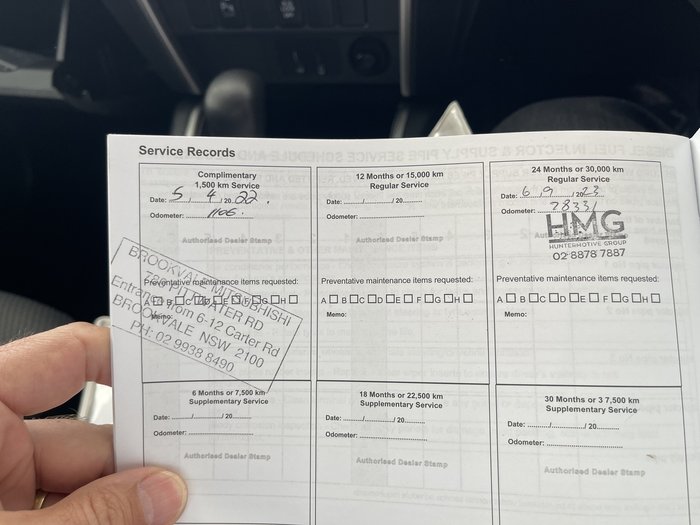 Service Records
Complimentary
1,500 km Service
Date: 5 / 4 / 2022.
Odometer: 1106.
Authorised Dealer Stamp
BROOKVALE MITSUBISHI
PITTWATER RD
Entrance from 6-12 Carter Rd
BROOKVALE NSW 2100
PH: 02 9938 8490
Preventative maintenance items requested:
A B C D E F G H
Memo:
12 Months or 15,000 km
Regular Service
Date: / / 20
Odometer:
Authorised Dealer Stamp
Preventative maintenance items requested:
A B C D E F G H
Memo:
24 Months or 30,000 km
Regular Service
Date: 6 / 9 / 2023
Odometer: 28331
HMG
HUNTERMOTIVE GROUP
02 8878 7887
Preventative maintenance items requested:
A B C D E F G H
Memo:
6 Months or 7,500 km
Supplementary Service
Date: / / 20
Odometer:
Authorised Dealer Stamp
18 Months or 22,500 km
Supplementary Service
Date: / / 20
Odometer:
Authorised Dealer Stamp
30 Months or 3 7,500 km
Supplementary Service
Date: / / 20
Odometer:
Authorised Dealer Stamp